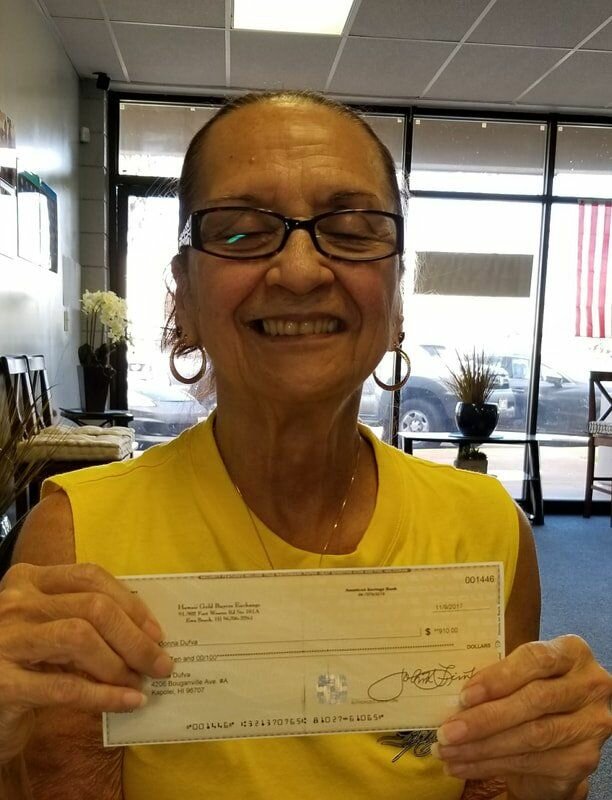 001446
Hawaii Gold Buyers Exchange
91-902 Fort Weaver Rd Ste 101A
Ewa Beach, HI 96706-2261
American Savings Bank
11/9/2017
donna Dufva
$ **910.00
Ten and 00/100
DOLLARS
Dufva
4206 Bouganville Ave. #A
Kapolei, HI 96707